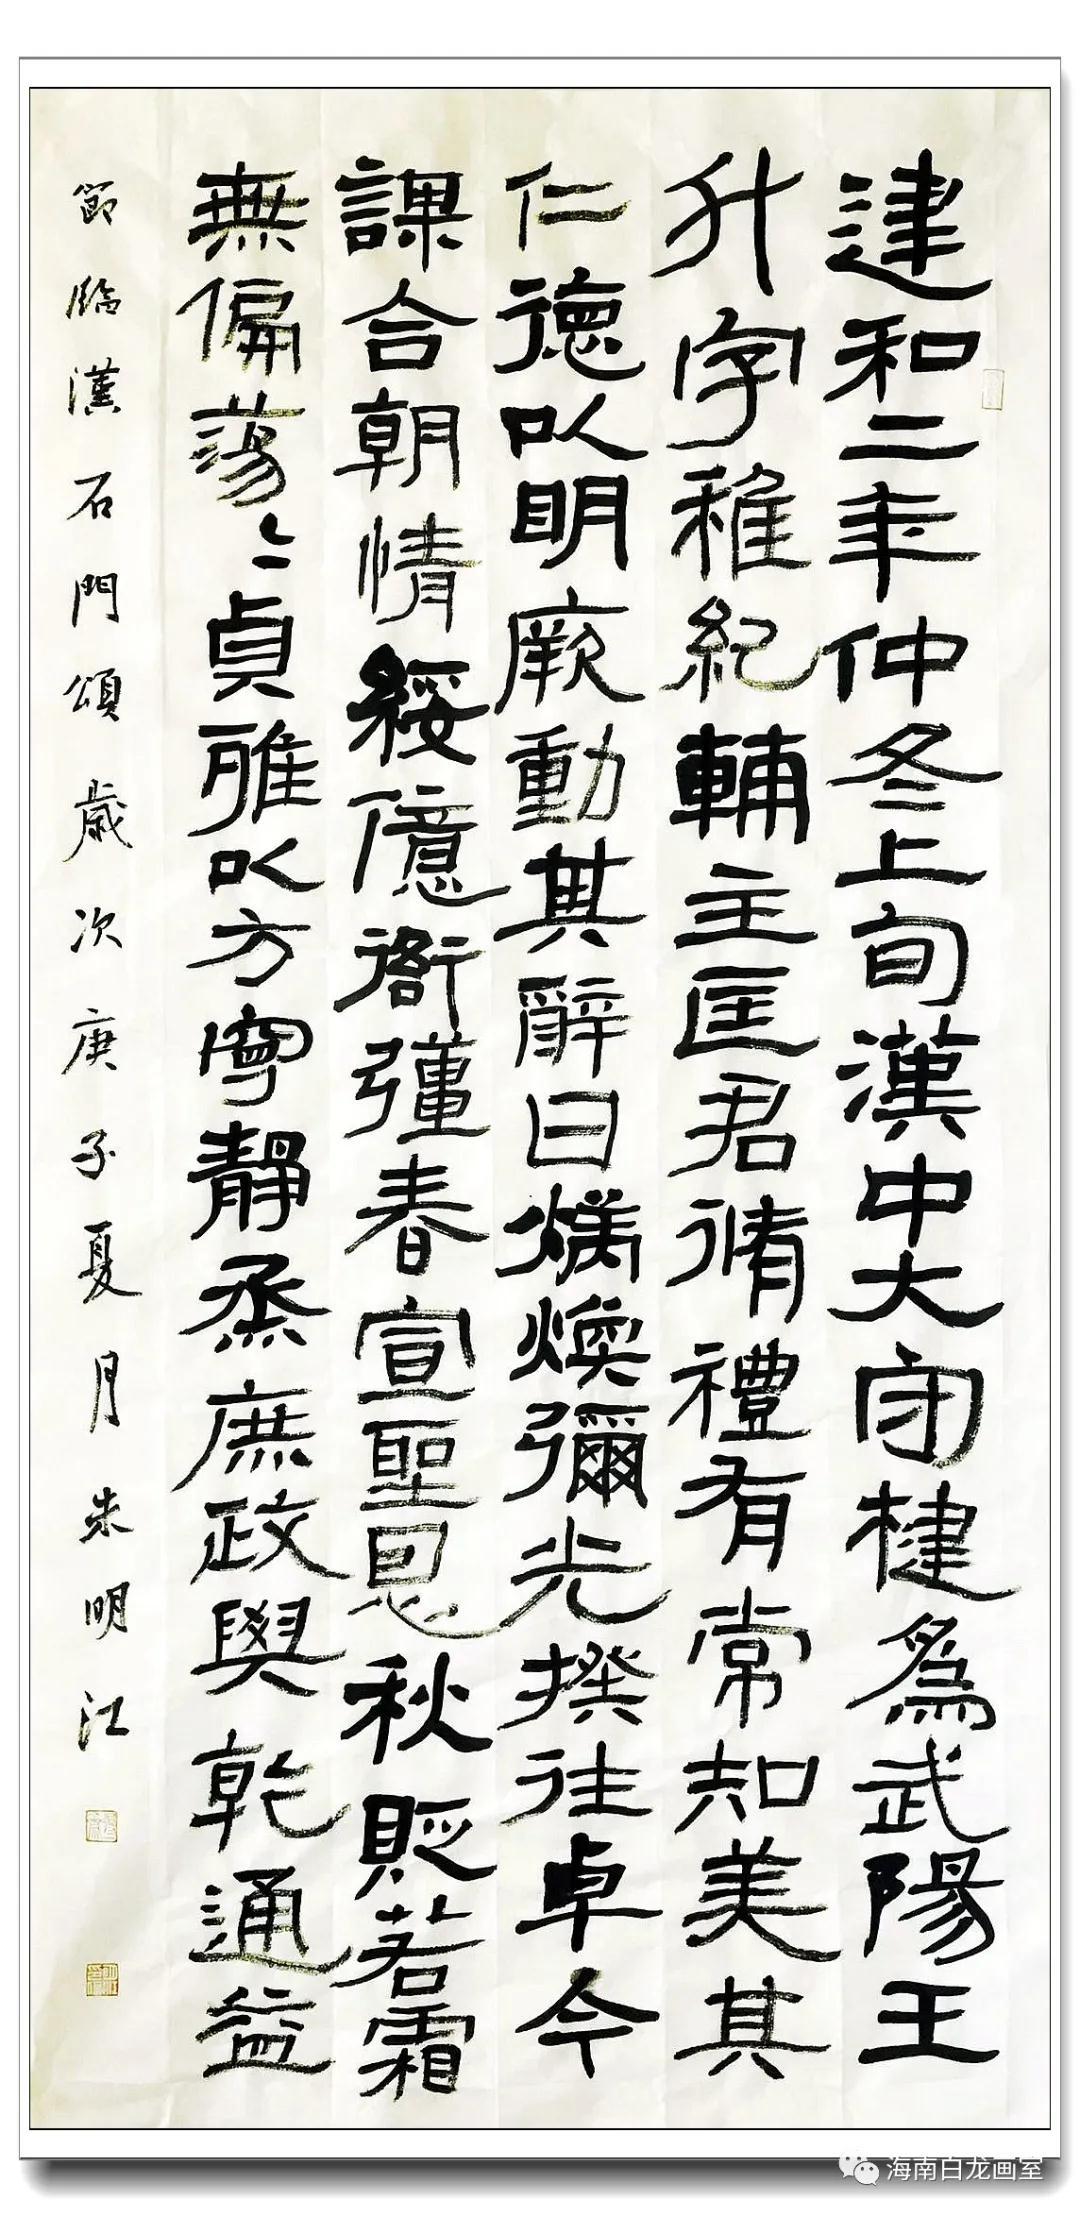 建和二年仲冬上旬漢中大守楗爲武陽王
升字稚紀輔主匡君脩禮有常知美其
仁德以明厥動其辭曰煌煌煥彌光撰往卓今
謀合朝情綏億衙彊春宣聖恩秋貶若霜
無偏蕩々貞雅以方寧靜烝庶政與乾通益
節臨漢石門頌歲次庚子夏月朱明江
海南白龙画室